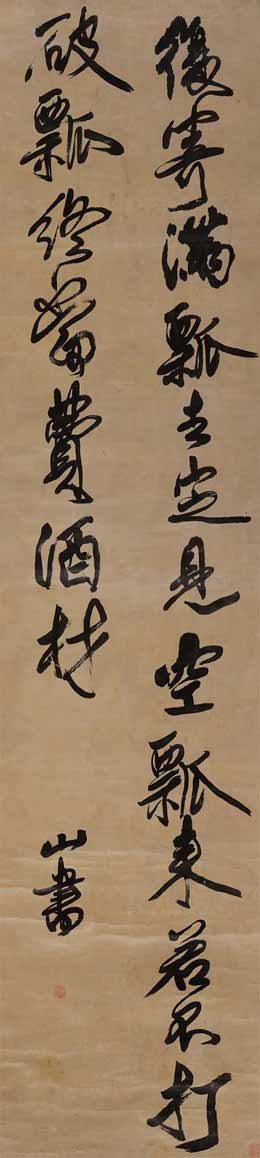 復寄滿瓢去定見空瓢來若不打
破瓢終當費酒材
山書